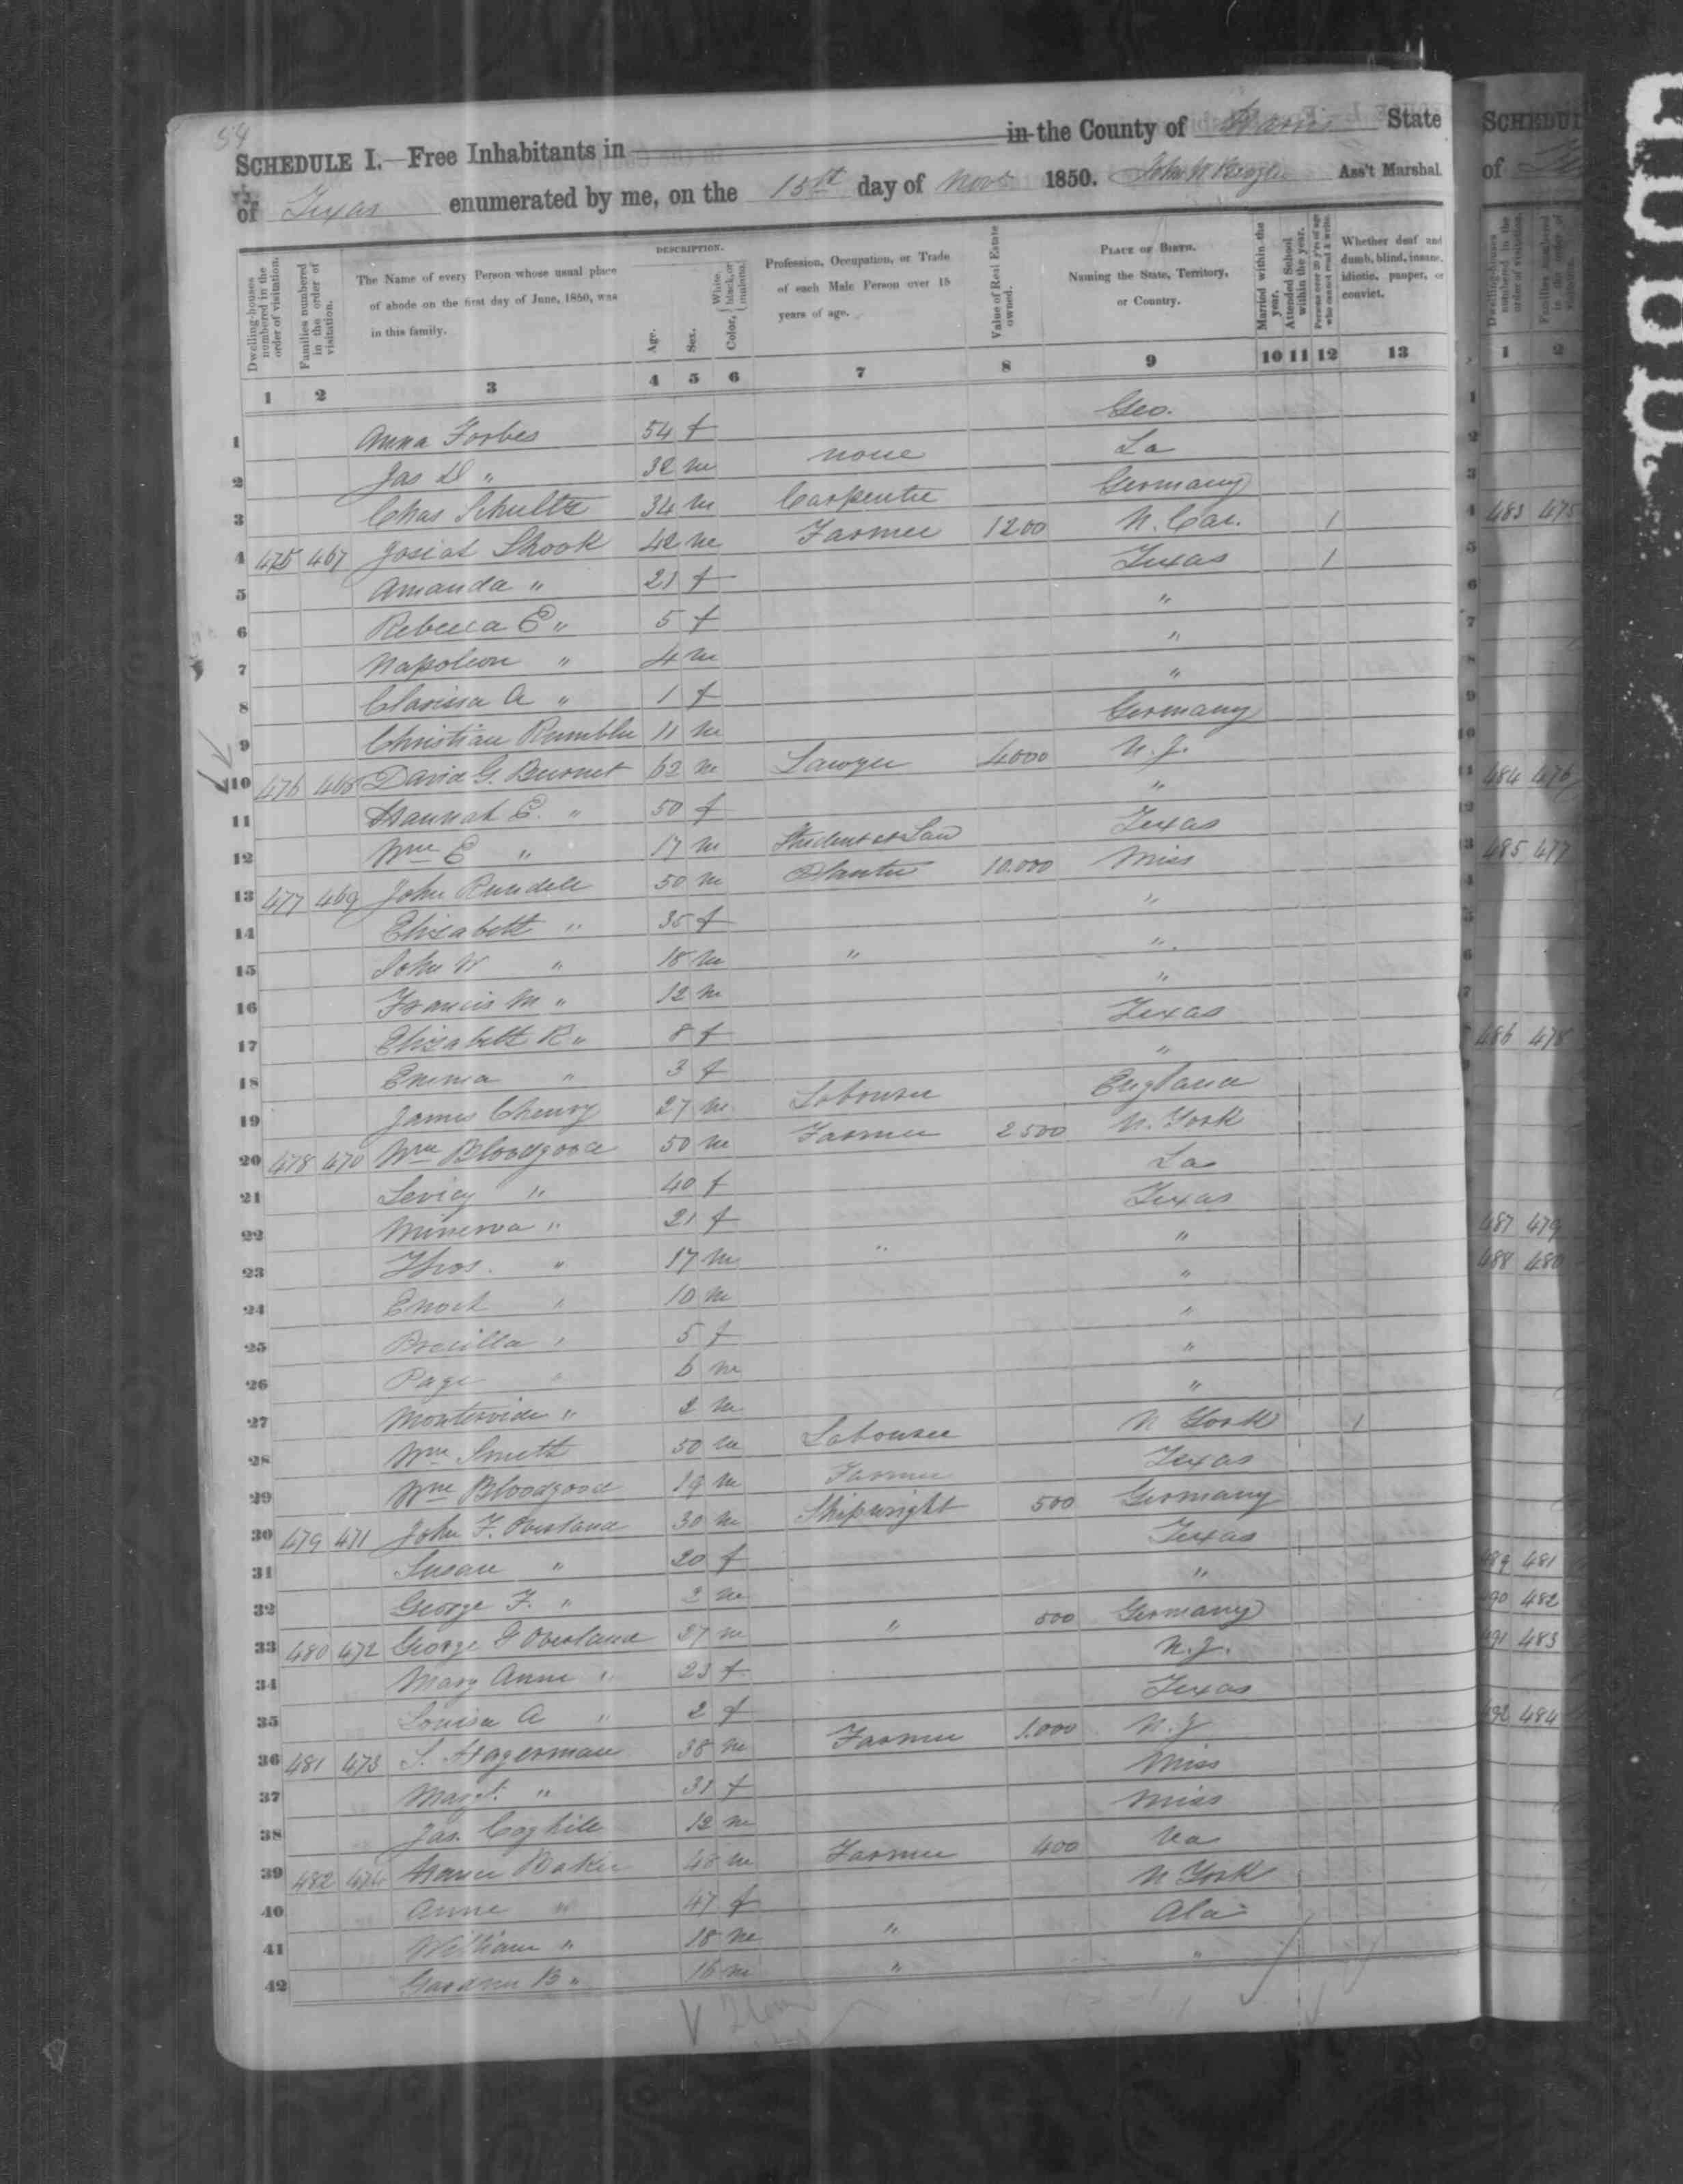 SCHEDULE I.—Free Inhabitants in in the County of Harris State
of Texas enumerated by me, on the 15th day of Nov 1850. John W Ass't Marshal.
Dwelling-houses numbered in the order of visitation.
Families numbered in the order of visitation.
The Name of every Person whose usual place of abode on the first day of June, 1850, was in this family.
DESCRIPTION.
Age.
Sex.
Color, White, black, or mulatto.
Profession, Occupation, or Trade of each Male Person over 15 years of age.
Value of Real Estate owned.
PLACE OF BIRTH. Naming the State, Territory, or Country.
Married within the year.
Attended School within the year.
Persons over 20 y'rs of age who cannot read & write.
Whether deaf and dumb, blind, insane, idiotic, pauper, or convict.
1 2 3 4 5 6 7 8 9 10 11 12 13
1 Anna Forbes 54 f Geo.
2 Jas D " 32 m none La
3 Chas Schultz 34 m Carpenter Germany
4 475 467 Josiah Shook 42 m Farmer 1200 N. Car. 1
5 Amanda " 21 f Texas 1
6 Rebecca E " 5 f "
7 Napoleon " 4 m "
8 Clarissa A " 1 f "
9 Christian 11 m Germany
10 476 468 David G. Burnet 62 m Lawyer 4000 N. J.
11 Hannah E. " 50 f "
12 Wm E " 17 m Student at Law Texas
13 477 469 John Rundell 50 m Planter 10.000 Miss
14 Elizabeth " 35 f "
15 John W " 18 m " "
16 Francis M " 12 m "
17 Elizabeth R " 8 f Texas
18 Emma " 3 f "
19 James Cheury 27 m Labourer England
20 478 470 Wm Bloodgood 50 m Farmer 2500 N. York
21 Levicy " 40 f La
22 Minerva " 21 f Texas
23 Thos. " 17 m " "
24 Enoch " 10 m "
25 " 5 f "
26 Page " 6 m "
27 " 2 m "
28 Wm Smith 50 m Labourer N York 1
29 Wm Bloodgood 19 m Farmer Texas
30 479 471 John F. Overland 30 m Shipwright 500 Germany
31 Susan " 20 f Texas
32 George F. " 2 m "
33 480 472 George Overland 27 m " 500 Germany
34 Mary Anne " 23 f N. J.
35 Louisa A " 2 f Texas
36 481 473 S. Hagerman 38 m Farmer 1.000 N. J
37 Margt. " 31 f Miss
38 Jas. Coghill 12 m Miss
39 482 474 Baker 48 m Farmer 400 Va
40 Anne " 47 f N York
41 William " 18 m " Ala
42 Gardner B " 16 m " "
SCHEDU
of
1 2
483 475
484 476
485 477
486 478
487 479
488 480
489 481
490 482
491 483
492 484